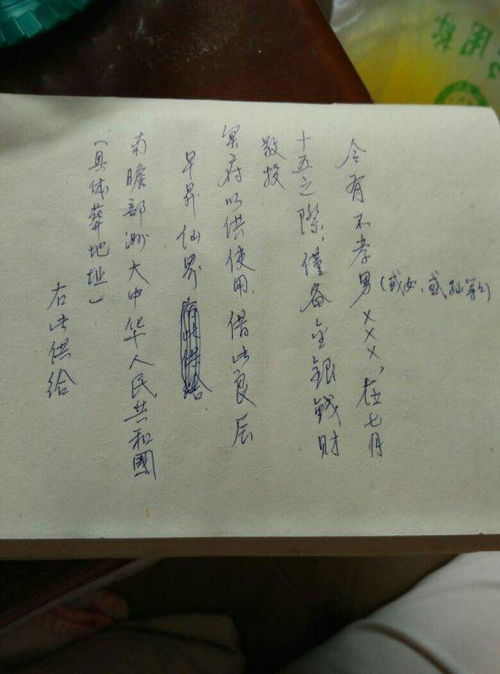 今有不孝男xxx，在七月
(或女、或孙等)
十五之际，僅备金銀錢财
敬投
冥府以供使用，借此良辰
早昇仙界
南瞻部洲大中华人民共和國
(具体葬地址)
右此供给